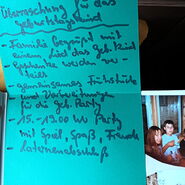 Überraschung für das
Geburtstagskind
- Familie
einem für das Geb.kind
- Geschenke werden ver-
teilt
- gemeinsames Frühstück
und Vorbereitungen
für die Geb. Party
- 15.-19.00 Uhr Party
mit Spiel, Spaß, Freunde
- Laternenabschluß